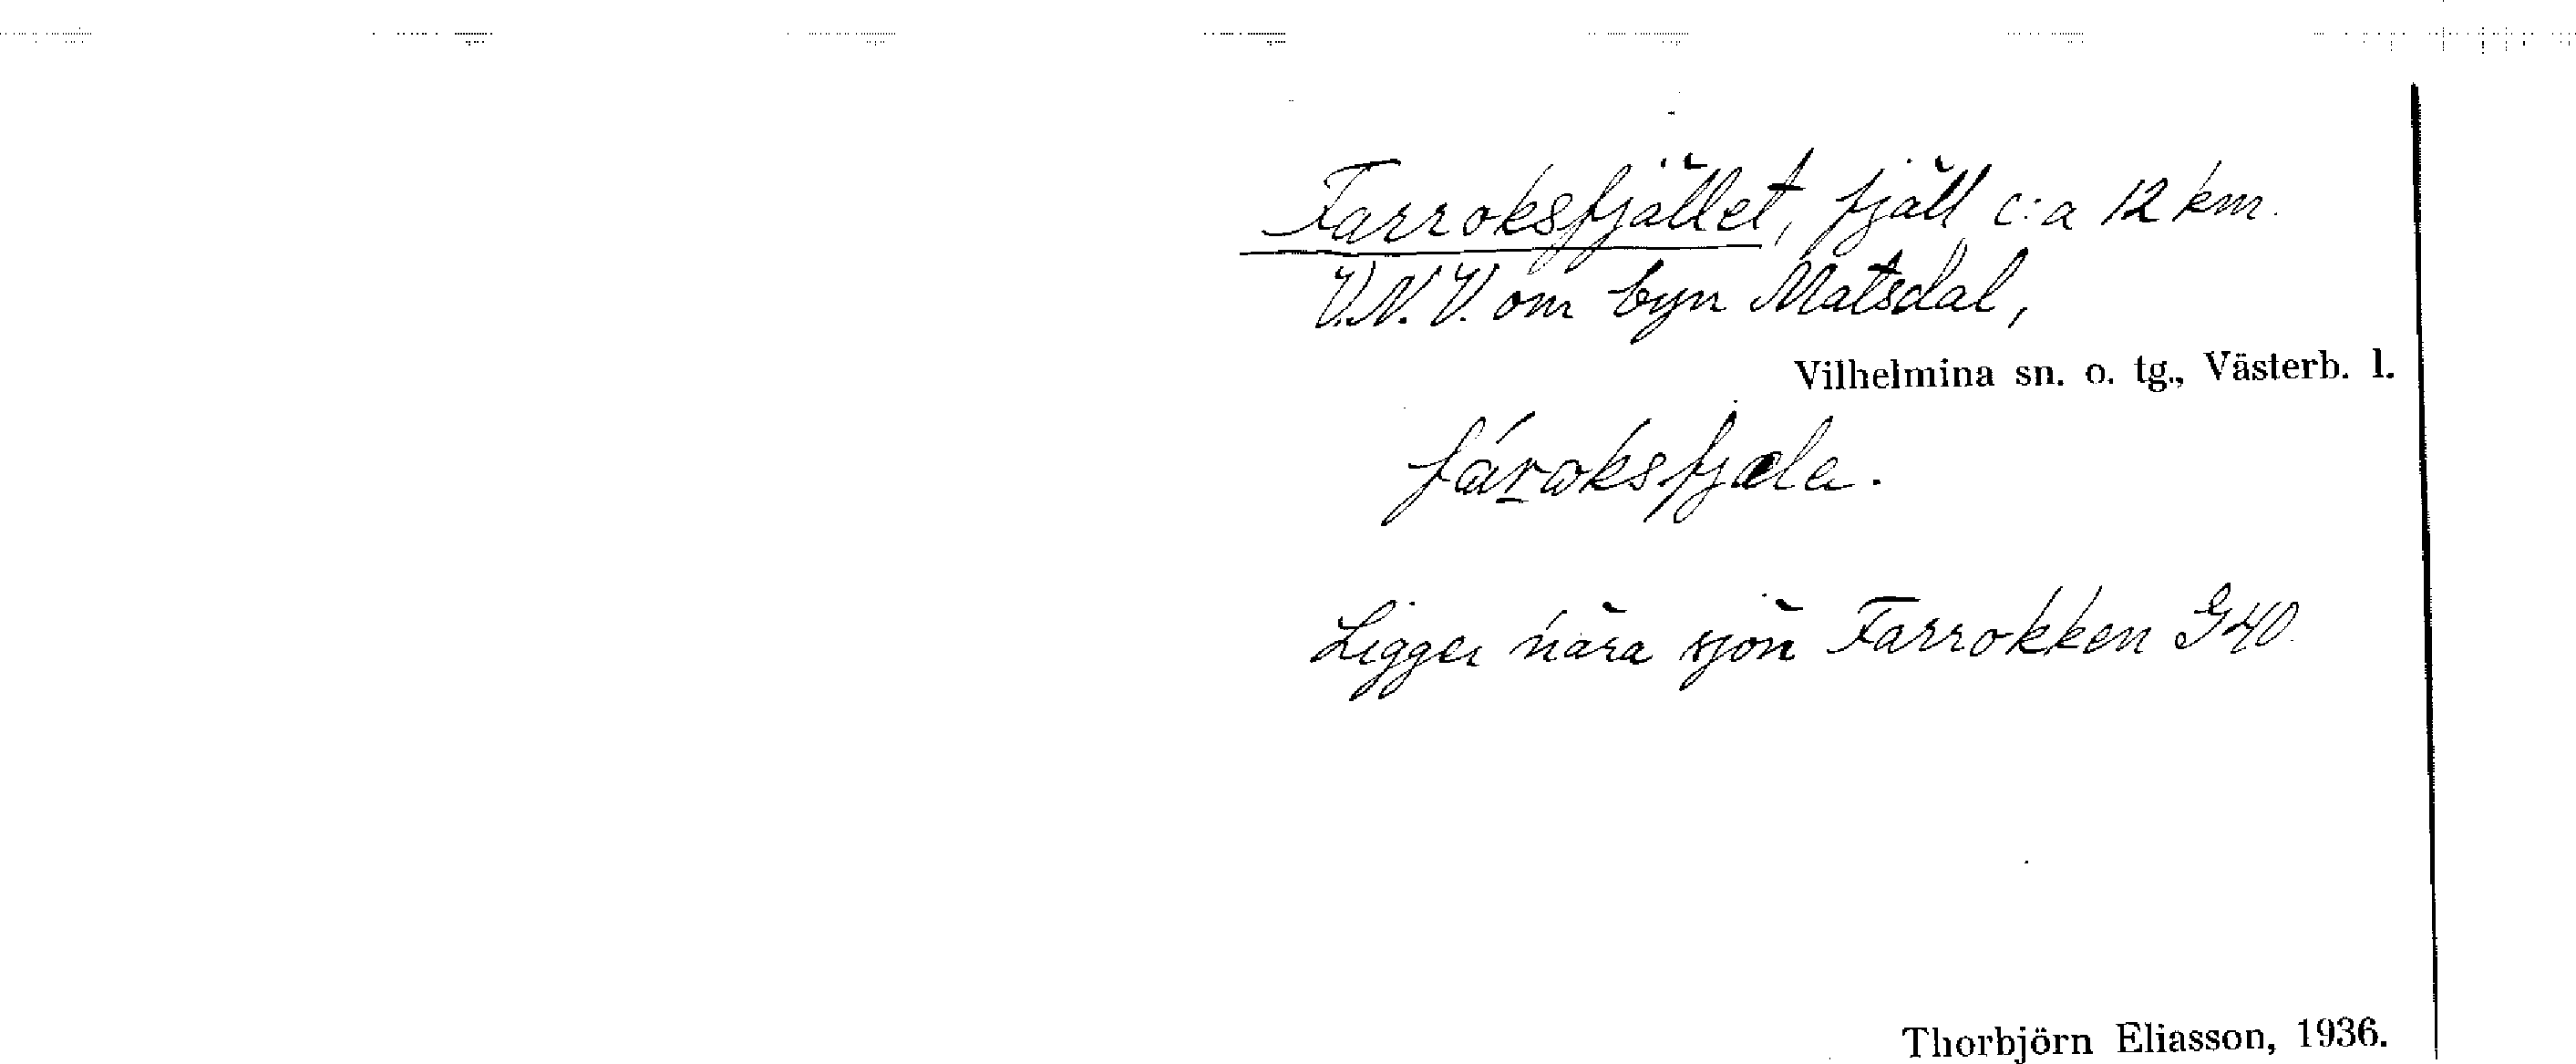 Farroksfjället, fjäll c:a 12 km.
V.N.V. om byn Matsdal,
Vilhelmina sn. o. tg., Västerb. l.
fároksfjæle.
Ligger nära sjön Farrokken G40.
Thorbjörn Eliasson, 1936.